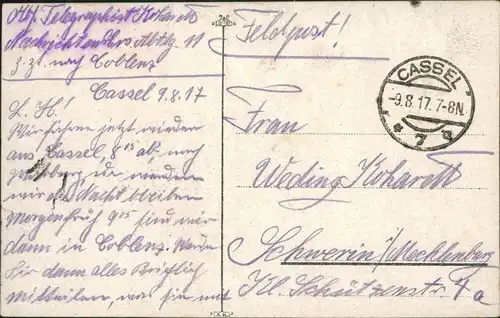 Abs. Telegraphist Kohardt
Nachrichten Ers. Abtlg. 11
z. Zt. nach Coblenz
Cassel 9.8.17
L. H.!
Wir fahren jetzt wieder
aus Cassel 8 15 ab, nach
wir Nacht bleiben
Morgenfrüh 9 15 sind wir
dann in Coblenz. Werde
Dir dann alles Brieflich
Mitteilen, was sie mit
Feldpost!
CASSEL
-9.8.17.7-8N.
* 7 a
Frau
Weding Kohardt
Schwerin i/Mecklenburg
Kl. Schützenstr. 4a